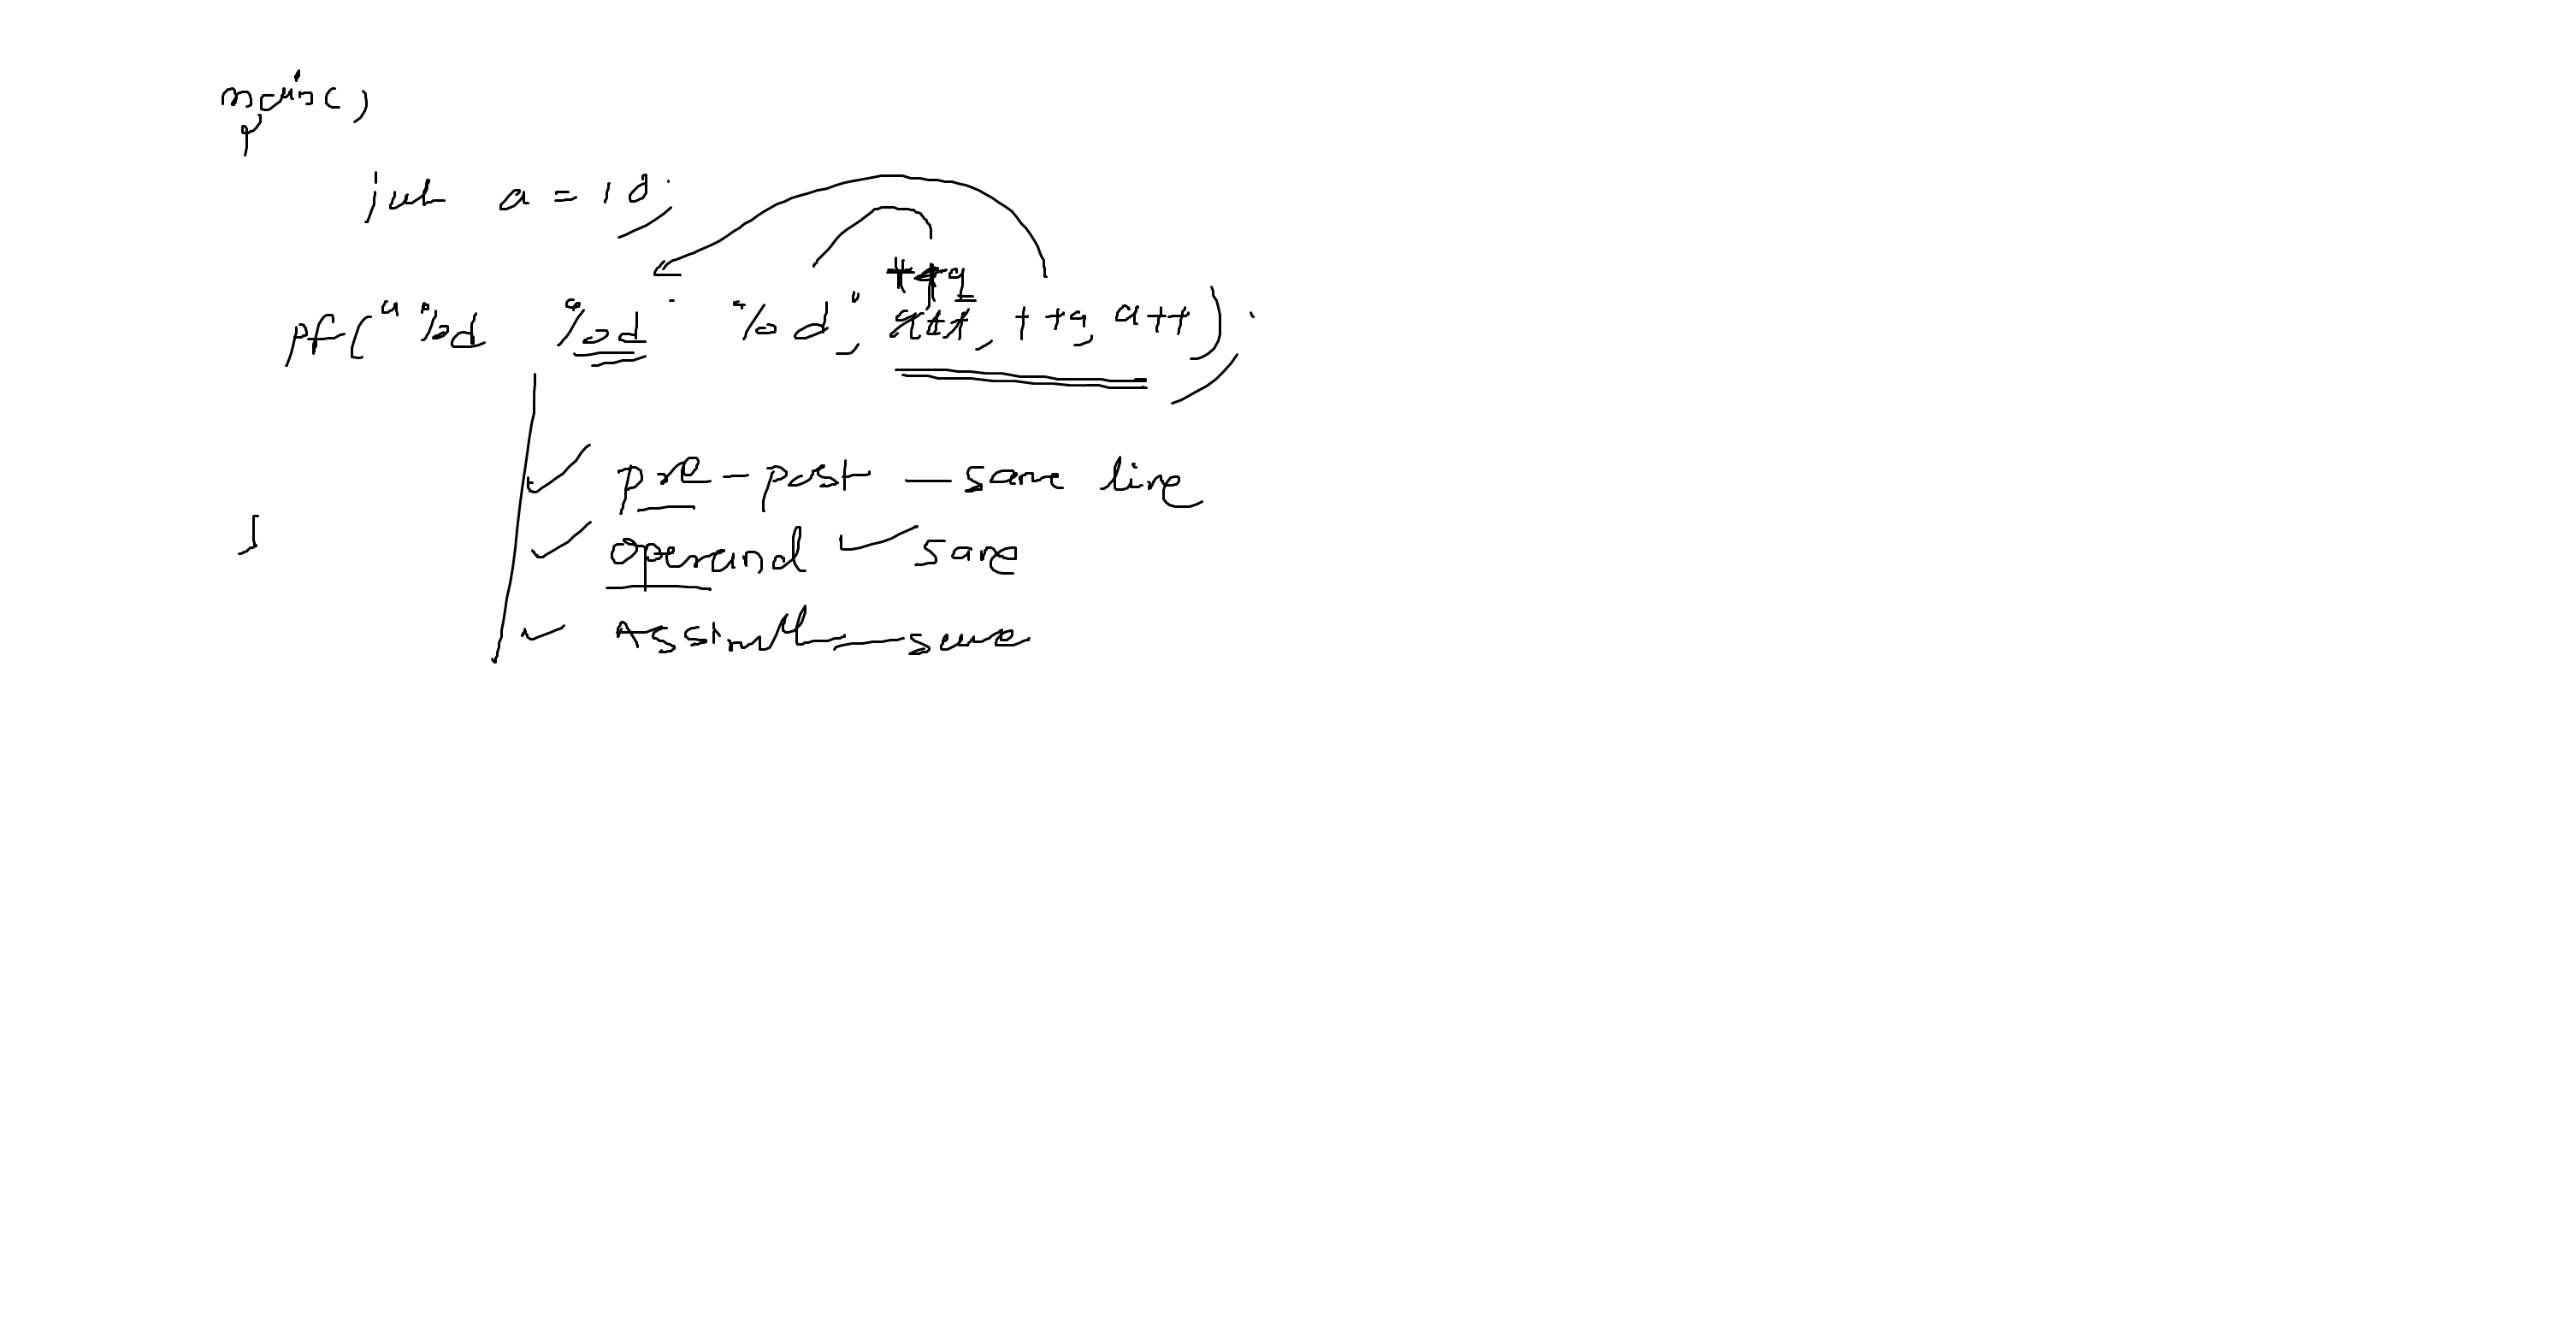 main()
{
int a = 10;
++a
pf("%d %d %d", a++, ++a, a++);
pre - post — same line
operand same
}
same